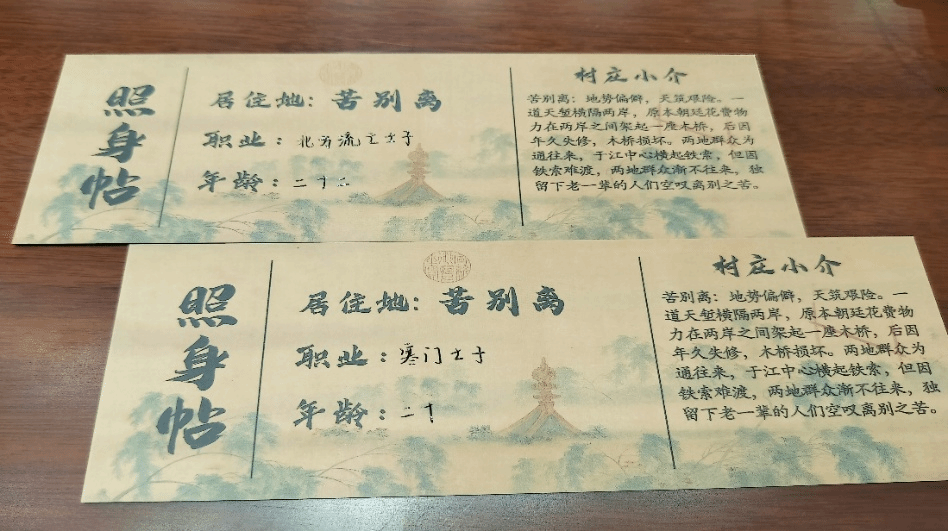 照身帖
居住地：苦别离
职业：北方流亡士子
年龄：二十二
村庄小介
苦别离：地势偏僻，天筑艰险。一
道天堑横隔两岸，原本朝廷花费物
力在两岸之间架起一座木桥，后因
年久失修，木桥损坏。两地群众为
通往来，于江中心横起铁索，但因
铁索难渡，两地群众渐不往来，独
留下老一辈的人们空叹离别之苦。
照身帖
居住地：苦别离
职业：寒门士子
年龄：二十
村庄小介
苦别离：地势偏僻，天筑艰险。一
道天堑横隔两岸，原本朝廷花费物
力在两岸之间架起一座木桥，后因
年久失修，木桥损坏。两地群众为
通往来，于江中心横起铁索，但因
铁索难渡，两地群众渐不往来，独
留下老一辈的人们空叹离别之苦。